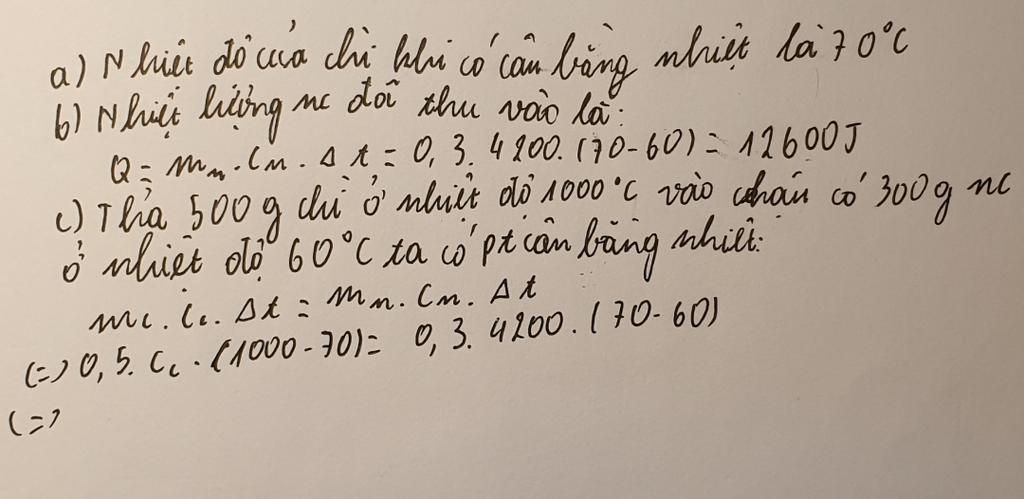 a) Nhiệt độ của chì khi có cân bằng nhiệt là 70°C
b) Nhiệt lượng nc đã thu vào là:
Q = mn. Cn. Δt = 0,3. 4200. (70-60) = 12600J
c) Thả 500g chì ở nhiệt độ 1000°C vào chậu có 300g nc
ở nhiệt độ 60°C ta có pt cân bằng nhiệt:
mc. Cc. Δt = mn. Cn. Δt
(=) 0,5. Cc. (1000-70) = 0,3. 4200. (70-60)
(=)